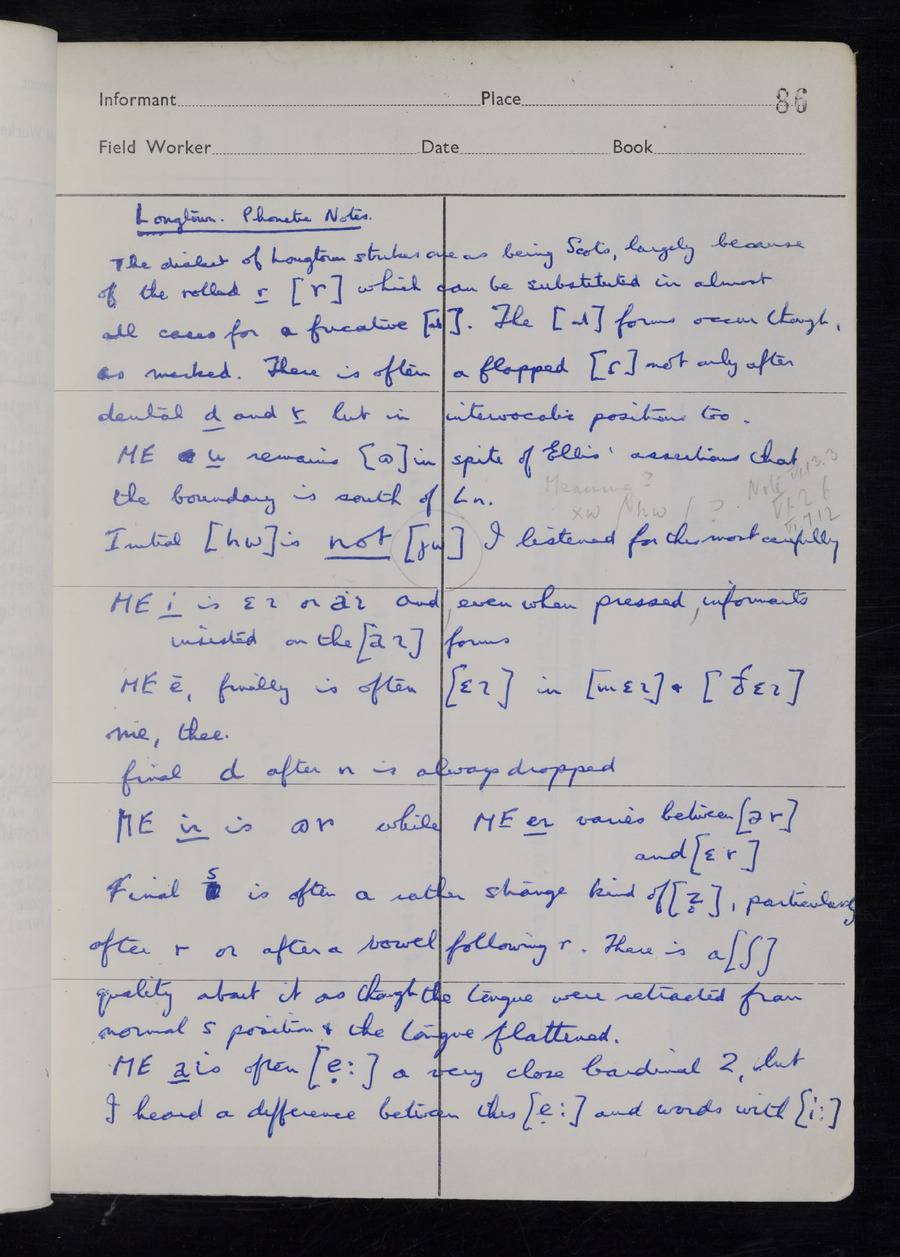 Informant Place 86
Field Worker Date Book
Longtown. Phonetic Notes.
The dialect of Longtown strikes one as being Scots, largely because
of the rolled r [r] which can be substituted in almost
all cases for a fricative [ɹ]. The [ɹ] forms occur though,
as marked. There is often a flapped [ɾ] not only after
dental d and t but in intervocalic positions too.
ME u remains [ɷ] in spite of Ellis' assertions that
the boundary is south of Ln.
Meaning? Note VI.13.3
xw hw / ? VI.2 6
VI.7.12
Initial [hw] is not [ʍ] I listened for this most carefully
ME i is ɛɪ or äɪ and, even when pressed, informants
insisted on the [äɪ] forms
ME ē, finally is often [ɛɪ] in [mɛɪ] & [ðɛɪ]
me, thee.
final d after n is always dropped
ME ir is ɷr while ME er varies between [ər]
and [ɛr]
Final s is often a rather strange kind of [z̥], particularly
after r or after a vowel following r. There is a [ʃ]
quality about it as though the tongue were retracted from
normal s position & the tongue flattened.
ME a is often [ẹ:] a very close Cardinal 2, but
I heard a difference between this [ẹ:] and words with [i:]